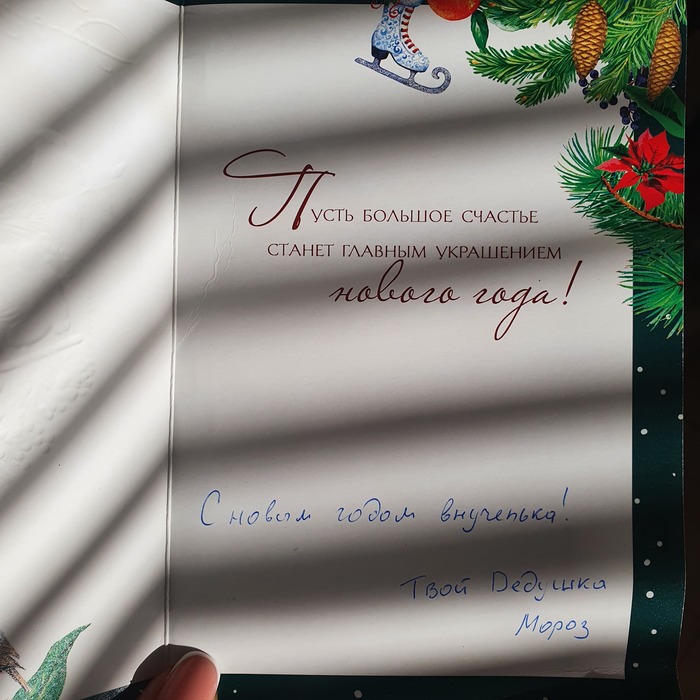 Пусть большое счастье
станет главным украшением
нового года!
С новым годом внученька!
Твой Дедушка
Мороз